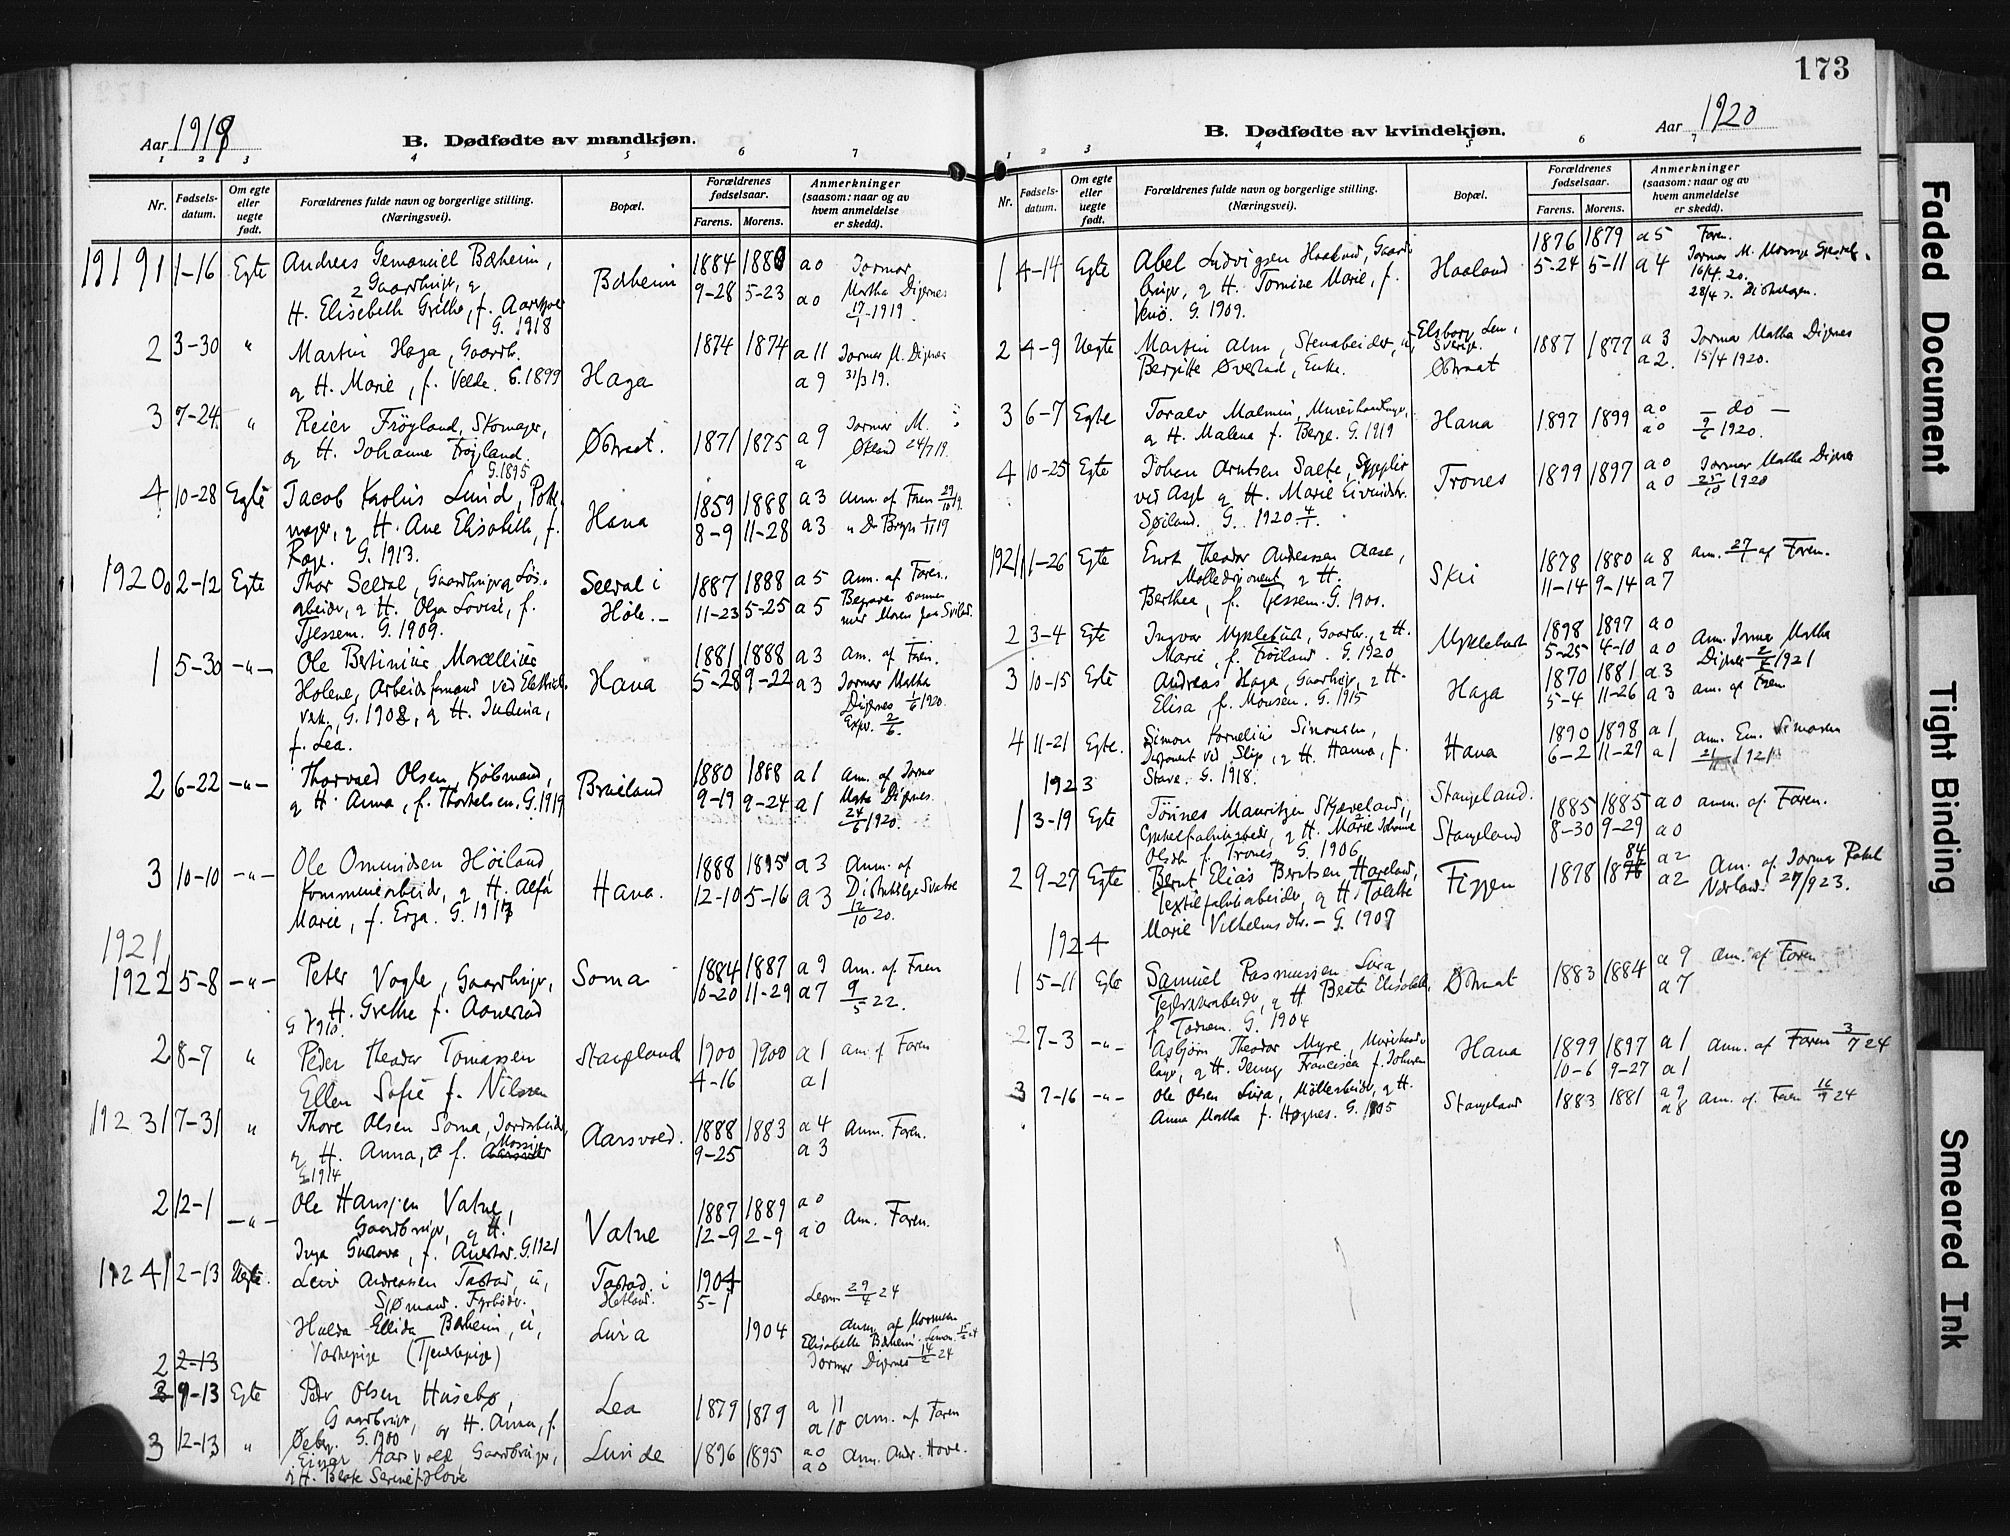 Aar 1919
B. Dødfødte av mandkjøn.
1 2 3 4 5 6 7
Nr.
Fødsels-
datum.
Om egte
eller
uegte
født.
Forældrenes fulde navn og borgerlige stilling.
(Næringsvei).
Bopæl.
Forældrenes
fødselsaar.
Farens. Morens.
Anmerkninger
(saasom: naar og av
hvem anmeldelse
er skedd).
1919 1 1-16 Egte Andreas Bærheim, Bærheim 1884 1880 a 0 Jormor
Gaardbruger, 9-28 5-23 a 0 Martha Digernes
H. Elisabeth Grethe, f. 17/1-1919
G. 1918
2 3-30 " Martin Haga, Gaardb. Haga 1874 1874 a 11 Jormor M. Digernes
og H. Marie, f. Velde. G. 1899 a 9 31/3 19.
3 7-24 " Reier Frøyland, Skomager, 1871 1875 a 9 Jormor M.
og H. Johanne Frøyland. Økland 24/7 19.
G. 1895
4 10-28 Egte Jacob Karolius Lund, Hana 1859 1888 a 3 Anm. af Faren 29/10 19.
og H. Ane Elisabeth, f. 8-9 11-28 a 3
Rage. G. 1913.
1920 2-12 Egte Thor Seldal, Gaardbruger Seldal i 1887 1888 a 5 Anm. af Faren.
arbeider, og H. Olga Lovise, f. Høle.- 11-23 5-25 a 5 Begravet sammen
Tjessem. G. 1909. med Moren
1 5-30 -"- Ole Bertinius Marcellius Hana 1881 1888 a 3 Am. af Faren.
Holene, Arbeidsformand ved Elektric. 5-28 9-22 a 3 Jormor Martha
G. 1908, og H. Digernes 1/6 1920.
f. Lea. 2/6.
2 6-22 -"- Thorvald Olsen, Købmand, Brueland 1880 1888 a 1 Am. af Jormor
og H. Anna, f. Thorkelsen. G. 1919 9-19 9-24 a 1 Digernes.
24/6 1920.
3 10-10 -"- Ole Omundsen Høiland, Hana. 1888 1895 a 3 Anm. af
og H. Alfa 12-10 5-16 a 3 Svatse
Marie, f. Erga. G. 1917 12/10 20.
1921
1922 5-8 -"- Peter Vagle, Gaardbruger, Soma 1884 1887 a 9 Am. af Faren
H. Grethe f. Aanestad 10-20 11-29 a 7 9/5 22.
G 1910
2 8-7 " Peder Theodor Tomassen Stangeland 1900 1900 a 1 am. f Faren
Ellen Sofie f. Nilsen 4-16 a 1
1923 1 7-31 " Thore Olsen Soma, Jordarbeider, Aarsvold. 1888 1883 a 4 Anm. Faren.
og H. Anna, f. Mossige 9-25 a 3
G 1914
2 12-1 -"- Ole Hansen Vatne, Vatne 1887 1889 a 0 Am. Faren.
Gaardbruger, og H. 12-9 2-9 a 0
Inga Gustava, f. Auestad. G. 1921
1924 1 2-13 Uegte. Leiv Andreassen Tastad, u, Tastad i 1904
Sjømand. Fyrbøder. Hetland. 5-1 29/4 24
Hulda Ellida Bærheim, u, Lura 1904 Anm. af Mormoren
Vaskepige (Tjenestepige) Elisabeth Bærheim
2 2-13 Jormor Digernes 14/2 24
9-13 Egte Peder Olsen Husebø, Lea 1879 1879 a 11
Gaardbruger, og H. Anna, f. a 10 Am. af Faren
G. 1900
3 12-13 " Einar Aarsvold, Gaardbruger, Lunde 1896 1895 a 0 Anm. Andr. Hove.
og H. Berte Serine f. Hove a 0
173
Aar 1920
B. Dødfødte av kvindekjøn.
1 2 3 4 5 6 7
Nr.
Fødsels-
datum.
Om egte
eller
uegte
født.
Forældrenes fulde navn og borgerlige stilling.
(Næringsvei).
Bopæl.
Forældrenes
fødselsaar.
Farens. Morens.
Anmerkninger
(saasom: naar og av
hvem anmeldelse
er skedd).
1 4-14 Egte Abel Ludvigsen Haaland, Gaard- Haaland 1876 1879 a 5 Faren.
bruger, og H. Tomine Marie, f. 5-24 5-11 a 4 Jormor M.
G. 1909. 16/4. 20.
2 4-9 Uegte Martin Alm, Stenarbeider, u, Elsborg Len, Sverige. 1887 1877 a 3 Jormor Martha Digernes
Bergitte Øvestad, Enke. a 2. 15/4 1920.
3 6-7 Egte Toralv Malmin, Murerhandlanger, Hana 1897 1899 a 0 - do -
og H. Malena f. Berge. G. 1919 a 0 9/6 1920.
4 10-25 Egte Johan Arntsen Saete, Trones 1899 1897 a 0 Jormor Martha Digernes
ved Asyl og H. Marie Eivindsdtr. a 0 25/10 1920
Søiland. G. 1920 4/1.
1921 1 1-26 Egte Theodor Andreassen Aase, Skei 1878 1880 a 8 Am. 27/1 af Faren.
og H. 11-14 9-14 a 7
Berthea, f. Tjessem. G. 1900.
2 3-4 Egte Ingvar Myklebust, Gaardbr., og H. Myklebust 1898 1897 a 0 Am. Jormor Martha
Marie, f. Frøiland. G. 1920 5-25 4-10 a 0 Digernes 1921
3 10-15 Egte Andreas Haga, Gaardbr., og H. Haga 1870 1881 a 3
Elisa, f. Monsen. G. 1915 5-4 11-26 a 3 am. af Faren
4 11-21 Egte. Simon Kornelius Simonsen, Hana 1890 1898 a 1 Am. Em. Simonsen
og H. Hanna, f. 6-2 11-27 a 1 1921
Stave. G. 1918.
1923
Stangeland.
1 3-19 Egte Tønnes Mauritzen Skjæveland, Stangeland 1885 1885 a 0 anm. af Faren.
Cykkelfabrikarbeider, og H. Marie Johanne 8-30 9-29 a 0
Olsdtr. f. Trones. G. 1906
2 9-27 Egte Bernt Elias Berntsen Haveland, Figgen 1878 84 a 2 Am. af Jormor Rakel
Textilfabrikarbeider, og H. a 2 Nærland. 27/9 23.
Marie Vilhelmsdtr. - G. 1907
1924
1 5-11 Egte Samuel Rasmussen Lura, 1883 1884 a 9 Am. af Faren
Teglverksarbeider, og H. Beate Elisabeth, a 7
f. G. 1904
2 7-3 -"- Asbjørn Theodor Myre, Murerhand- Hana 1899 1897 a 1 Am. af Faren 3/7 24
langer, og H. Jenny Francisca f. Johnsen 10-6 9-27 a 1
3 7-16 -"- Ole Olsen Lura, Møllearbeider, og H. Stangeland 1883 1881 a 9 am. af Faren 24
Anna Martha f. Høgnes. G. 1905 a 8
Faded Document
Tight Binding
Smeared Ink